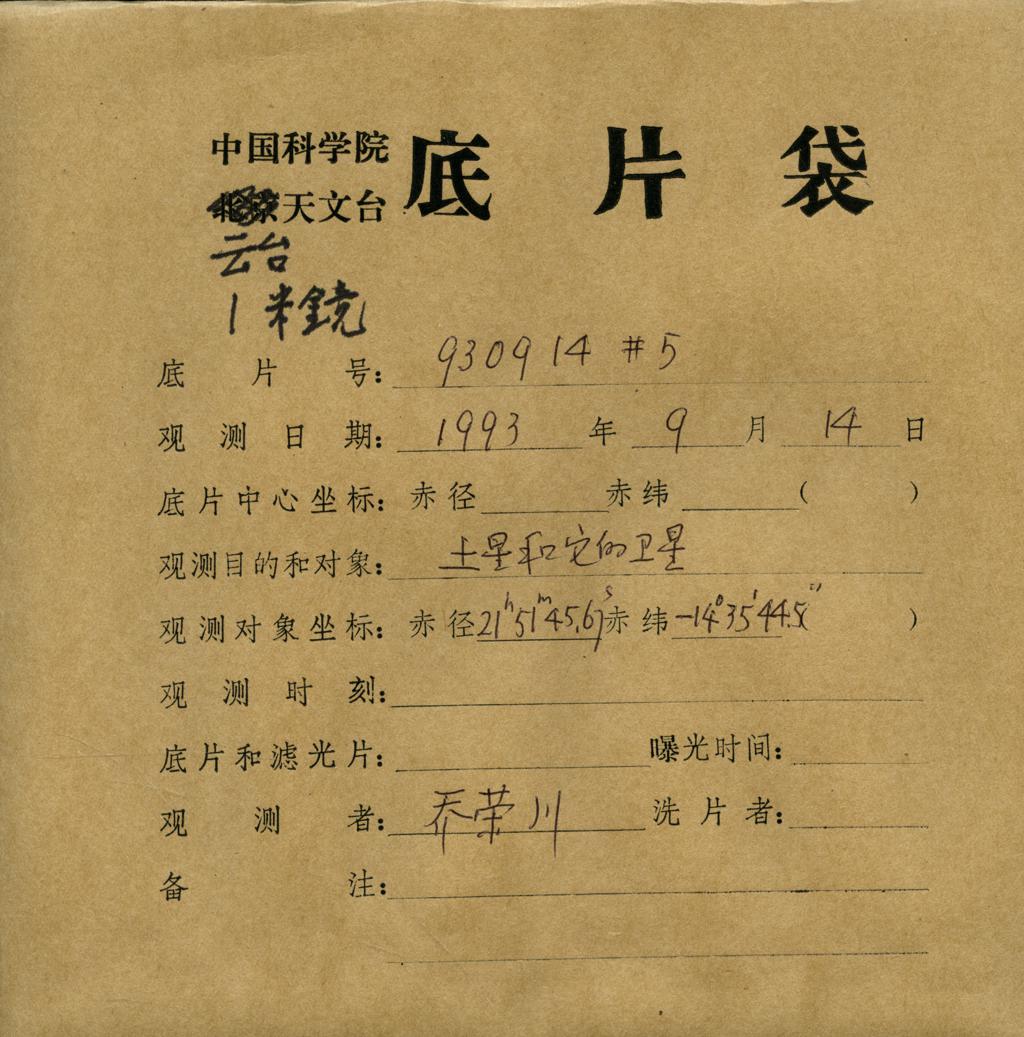 中国科学院 底片袋
北京天文台
云台
1米鏡
底片号: 930914 #5
观测日期: 1993 年 9 月 14 日
底片中心坐标: 赤径 赤纬 ( )
观测目的和对象: 土星和它的卫星
观测对象坐标: 赤径 21h51m45.67s 赤纬 -14°35′44.5″ ( )
观测时刻:
底片和滤光片: 曝光时间:
观测者: 乔荣川 洗片者:
备注: